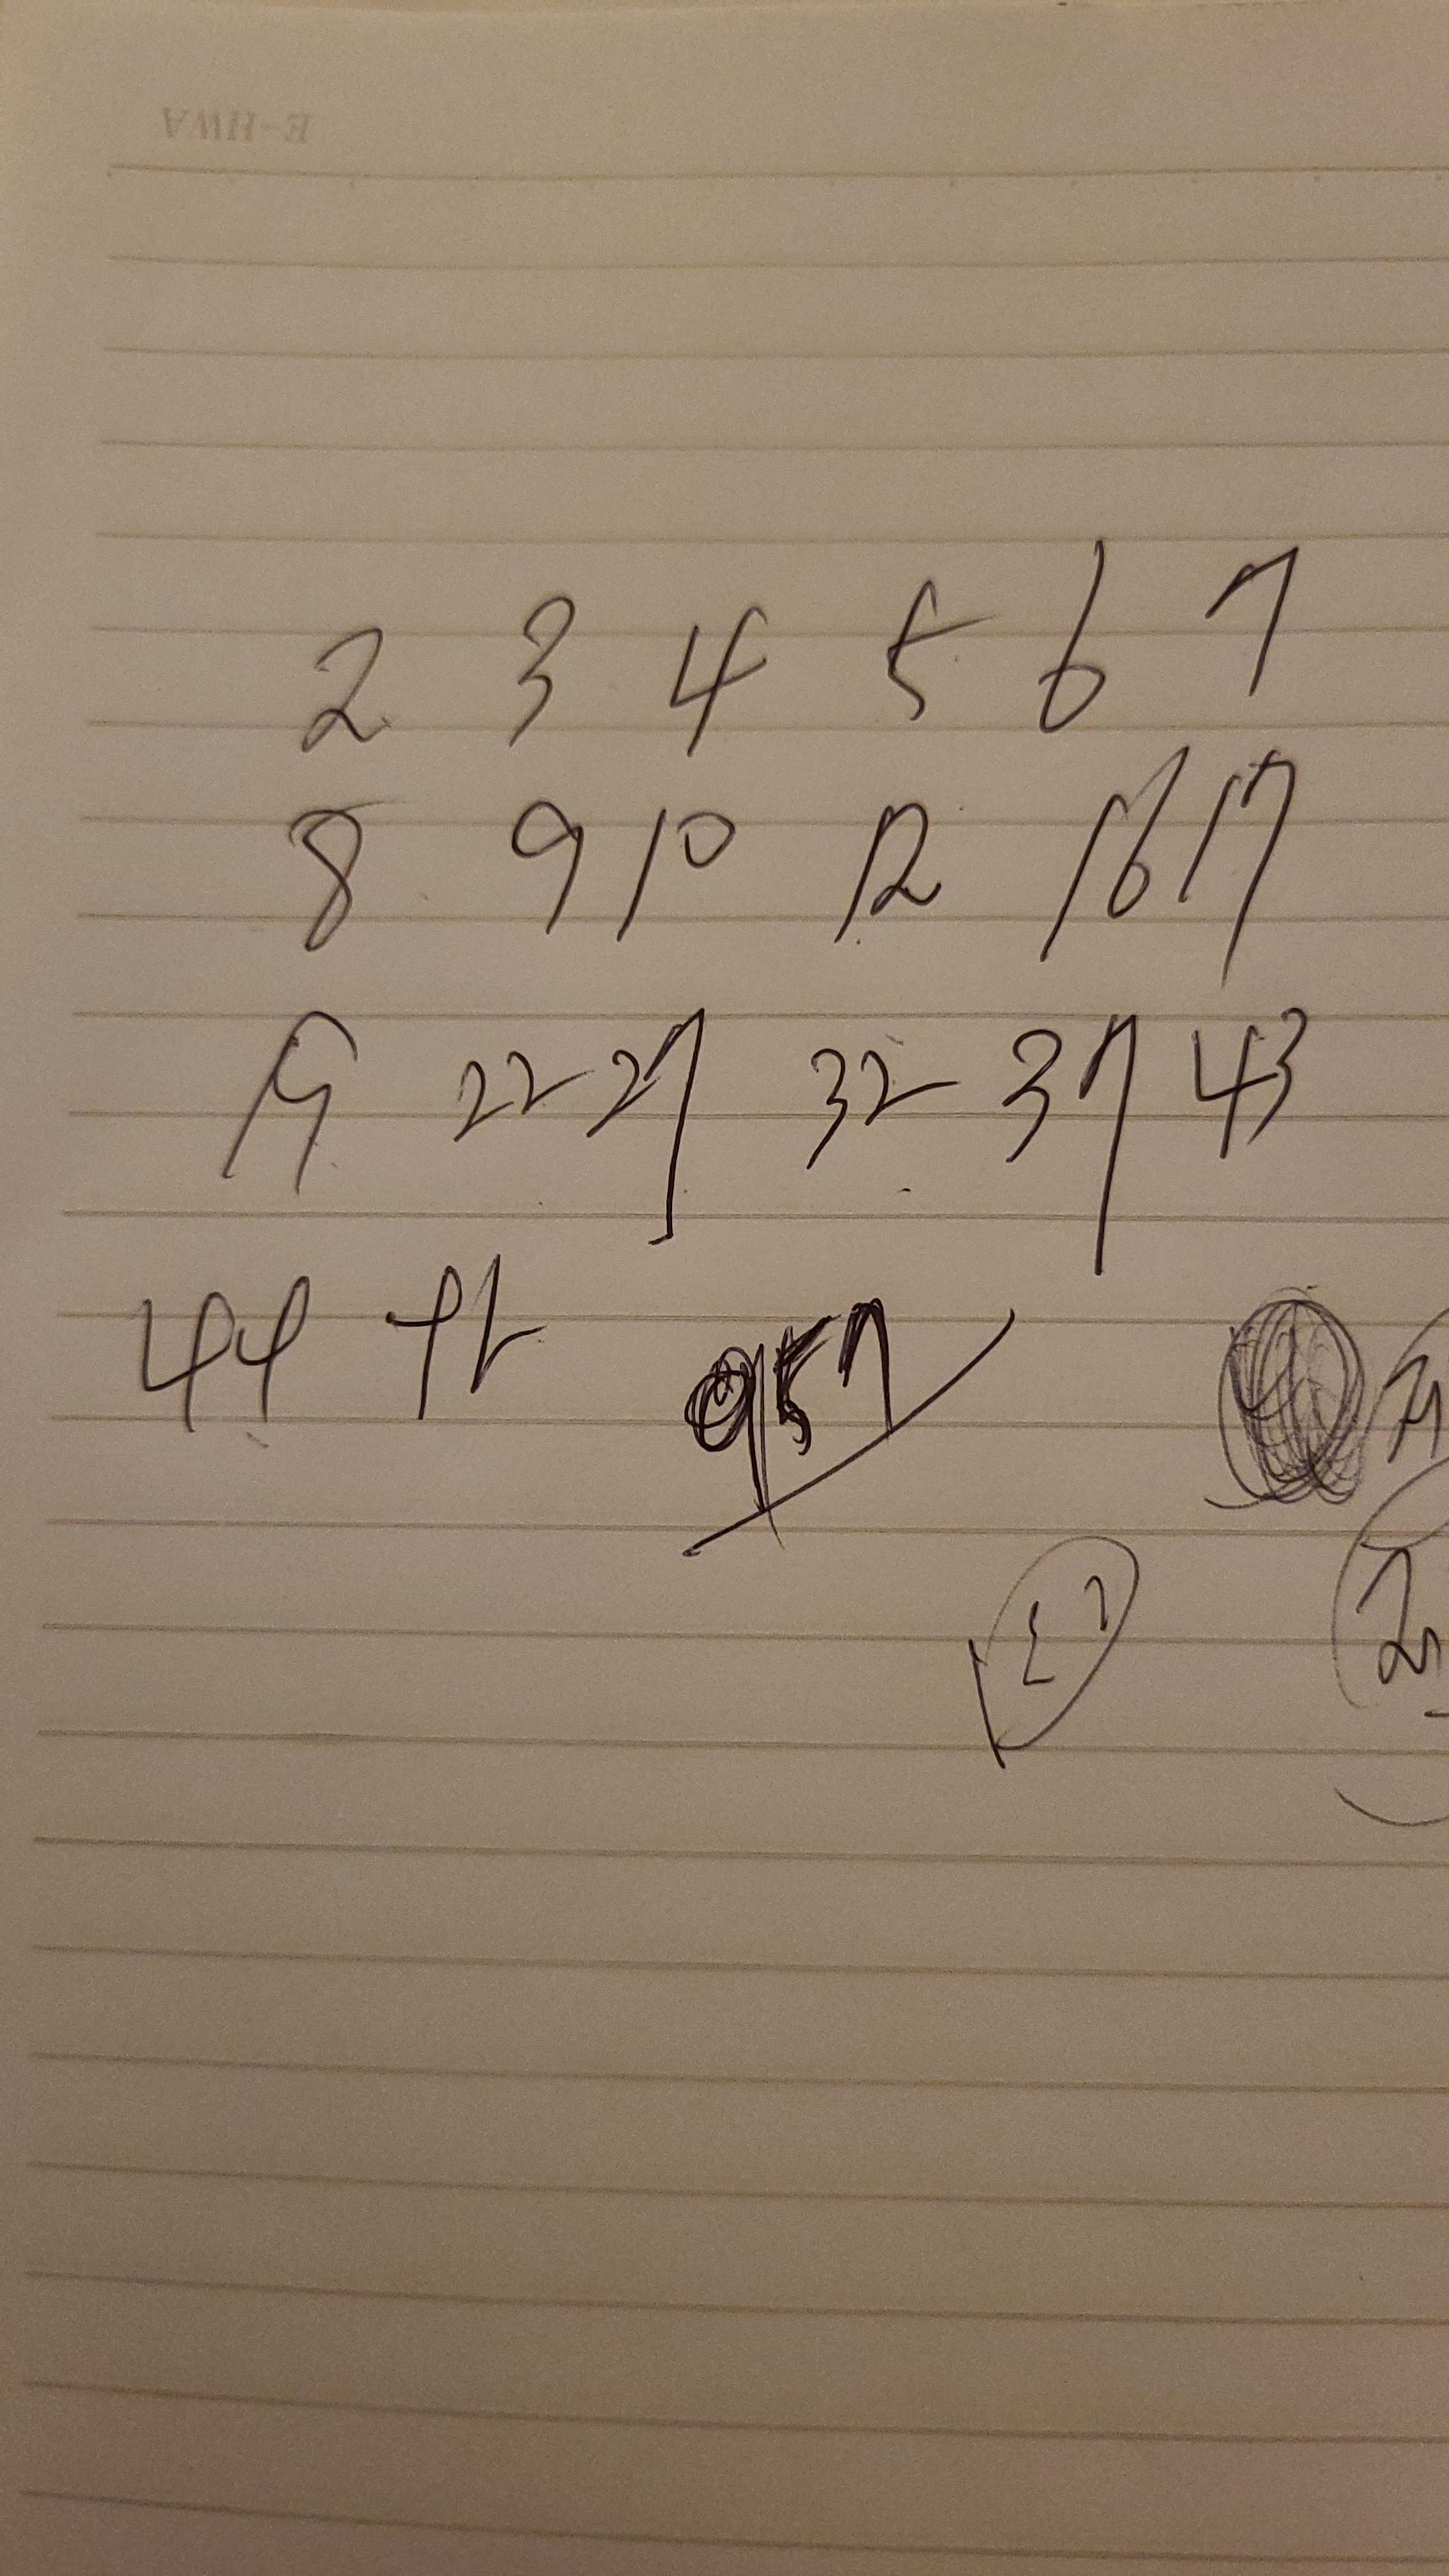 E-HWA
2 3 4 5 6 7
8 9 10 12 16 17
19 22 27 32 37 43
44 92 957